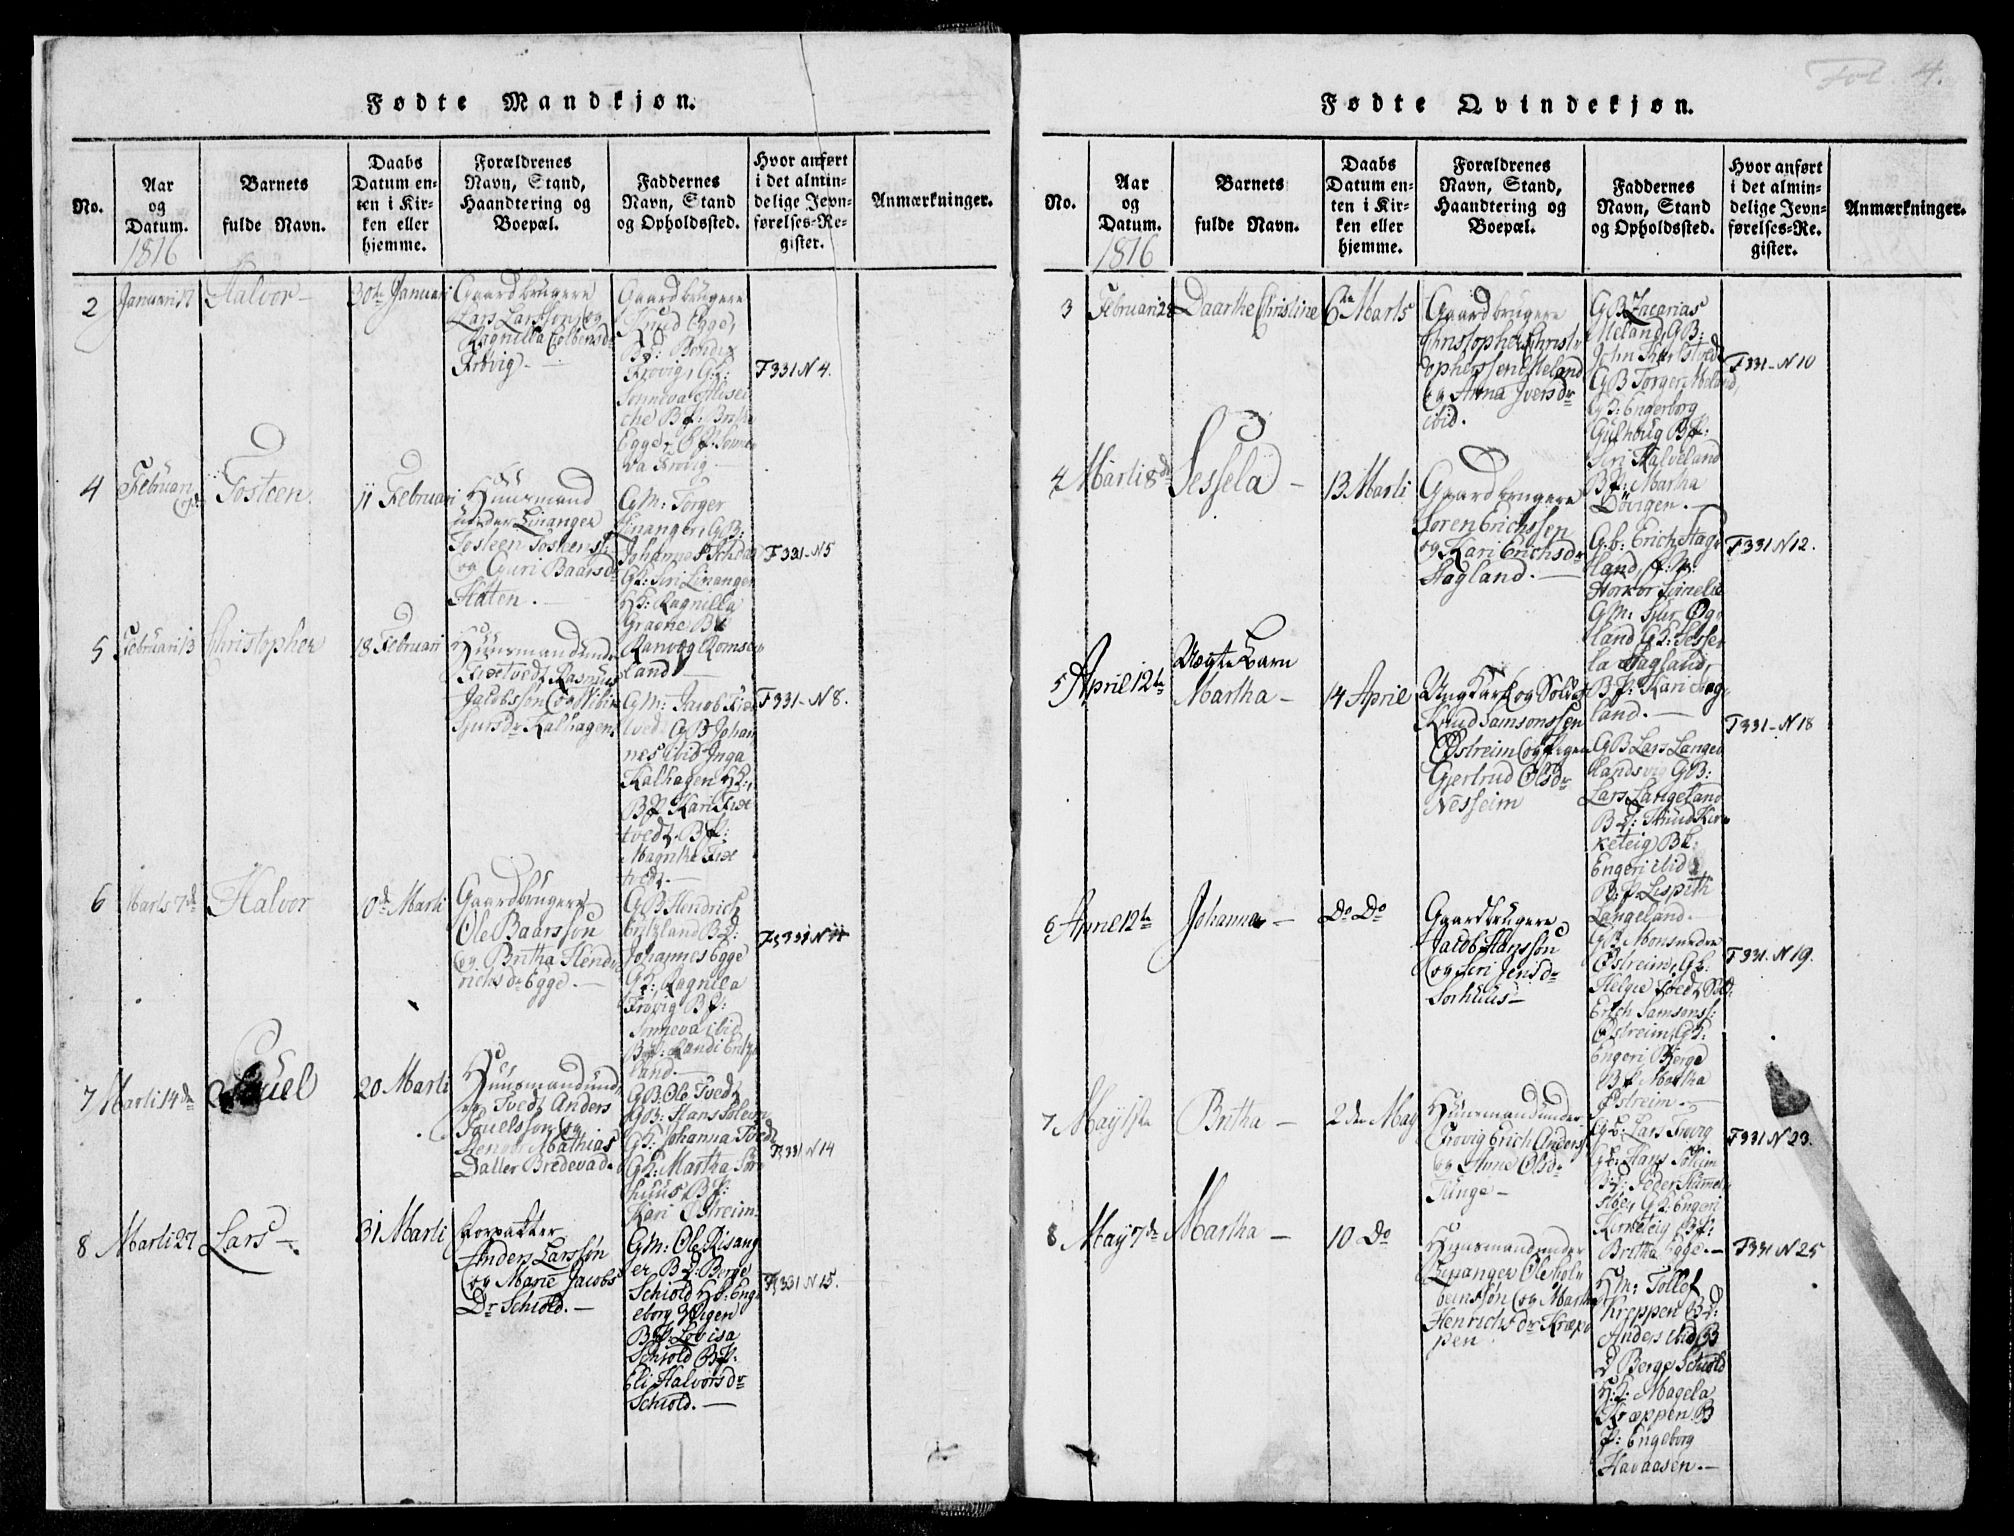 Fødte Mandkjøn.
No.
Aar
og
Datum.
1816
Barnets
fulde Navn.
Daabs
Datum en-
ten i Kir-
ken eller
hjemme.
Forældrenes
Navn, Stand,
Haandtering og
Boepæl.
Faddernes
Navn, Stand
og Opholdssted.
Hvor anført
i det almin-
delige Jevn-
førelses-Re-
gister.
Anmærkninger.
2
Januari 17
Halvor —
30te Januari
Gaardbrugere
Lars Larssøn og
Ragnilla
Frøvig. —
Gaardbrugere
Knud Egge,
Bendix
Frøvig, GK:
Sønneva
che BP: Britha
Egge, BP: Sønne
va Frøvig —
F 331 N 4.
4
Februari
Tosteen
11 Februari
Huusmand
under Linanger
Tosteen Tostens:
og Guri Baarsdr
Flaten. —
GM: Torger
Linanger, GB:
Johannes
GK: Siri Linanger
HK: Ragnilla
Gravne
Ranvæg Romse
land —
F 331 - N 5
5
Februari 13
Christopher
18 Februari
Huusmand under
Fixtvedt Rasmus
Jacobssøn og
Sjursdr Kalhagen
GM: Jacob Fix
tvedt GB Johan
nes ibid Inga
Kalhagen HK:
BP Kari Fixe
tvedt BP:
Magrithe Fixe
tvedt —
F 331 - N 8.
6
Marts 7de
Halvor
10de Marti
Gaardbrugere
Ole Baarssøn
og Britha Hend
richsdr Egge. —
GB Hendrich
Eritzland BD:
Johannes Egge
GK: Ragnilla
Frøvig BP:
Sønneva ibid
BP: Randi Eritz
land —
F 331 N 11
7
Marti 14de
20 Marti
Huusmand und
er Tvedt Anders
og
Mathias
Daller Bredevad.
GB Ole Tvedt
GB: Hans Solem
GK: Johanna Tvedt
GK: Martha Sør
huus BP:
Kari Østreim
F 331 N 14
8
Marti 27
Lars —
31 Marti
Forpagter
Anders Larssøn
og Marie Jacobs
Dr Schiold. —
GM: Ole Risang
er, BD: Berge
Schiold HK: Eng
eborg Wigen
BP: Lovisa
Schiold BP:
Eli Halvorsdr
Schiold. —
F 331 N 15.
Fol. 4.
Fødte Qvindekjøn.
No.
Aar
og
Datum.
1816
Barnets
fulde Navn.
Daabs
Datum en-
ten i Kir-
ken eller
hjemme.
Forældrenes
Navn, Stand,
Haandtering og
Boepæl.
Faddernes
Navn, Stand
og Opholdssted.
Hvor anført
i det almin-
delige Jevn-
førelses-Re-
gister.
Anmærkninger.
3
Februari 28
Daarthe Christine
6te Marts
Gaardbrugere
Christopher Christ
opherssen Meland
og Anna Iversdr
ibid.
GB Zacarias
Meland, GB:
John
GB Torger Meland,
GK: Engerborg
Gulhoug BP:
Siri Halveland
BP: Martha
Døvigen. —
F 331 - N 10
4
Marti 8de
Sessela —
13 Marti
Gaardbrugere
Søren Erichssen
og Kari Erichsdr
Hagland. —
Gb: Erich Hag
land,
GM: Siur Øge
land GK: Sesse
la Hagland,
BP: Kari Hag
land. —
F 331 N 12.
5
April 12te
Uægte Barn
Martha —
14 April
Ungkarl og Soldat
Knud Samsonssen
Østreim og Pigen
Gjertrud Olsdr
Nesseim
GB Lars Lange
landsvig GB:
Lars Langeland
BD: Knud Kir
keteig BK:
Engeri ibid
BP Lispeth
Langeland. —
F 331 - N 18
6
April 12te
Johanna —
Do Do
Gaardbrugere
Jacob Hanssøn
og Siri Jensdr
Sørhuus —
GB Mons nedre
Østreim, GK.
Helgie Tvedt Sold:
Erich Samsons:
Østreim, GK:
Engeri Berge
BP Martha
Østreim. —
F 331. N 19.
7
May 1ste
Britha —
2den May
Huusmand under
Frøvig Erich Anders:
og Anne Olsdr
Tunge —
GB: Lars Frøvig
GB: Hans Solheim
BD: Peder
GK: Engeri
Kirketeig BP:
Britha Egge. —
F 331 N 23.
8
May 7de
Martha —
10 Do
Huusmand under
Linanger Ole
og Martha
Henrichsdr Kræp
pen
HM: Tollef
Kreppen BD:
Anders ibid B
D Berge Schiold
HK: Magela
Kræppen B
P: Engeborg
Havaasen. —
F 331 N 25